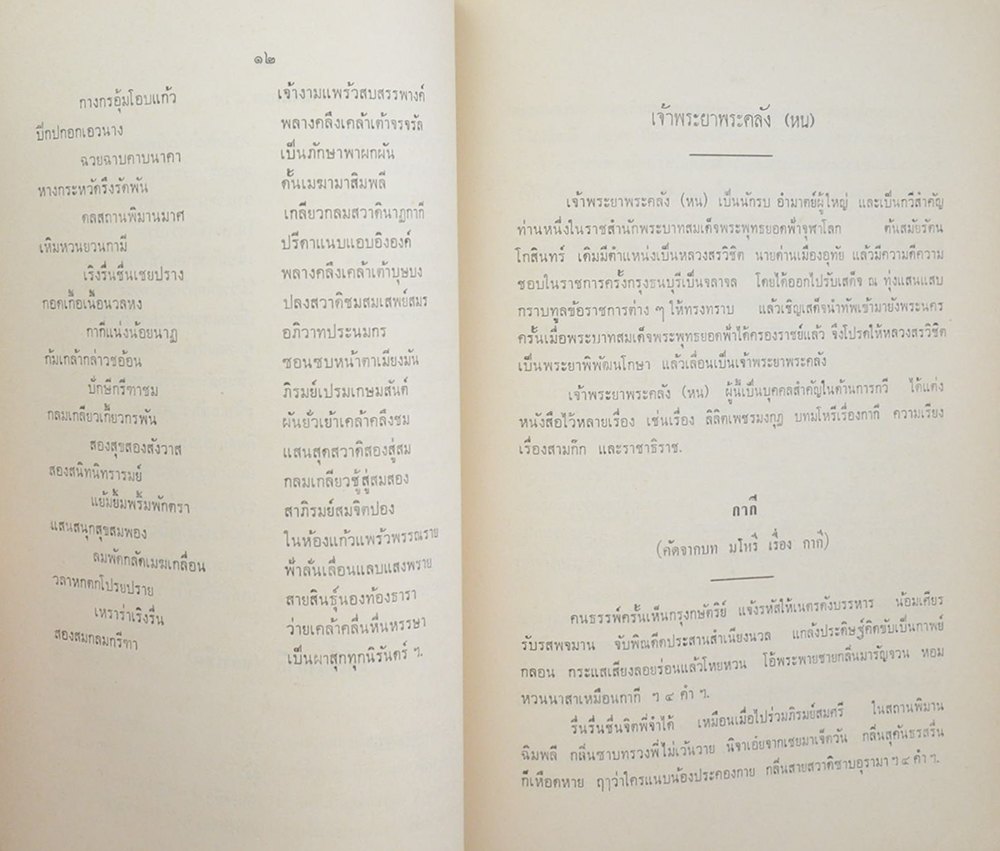 ๑๒
กางกรอุ้มโอบแก้ว เจ้างามแพร้วสบสรรพางค์
ปีกปกอกเอวนาง พลางคลึงเคล้าเต้าจรจรัล
ฉวยฉาบคาบนาคา เป็นภักษาพาผกผัน
หางกระหวัดรึงรัดพัน ดั้นเมฆามาสิมพลี
ดลสถานพิมานมาศ เกลียวกลมสวาดินาฏกากี
เหิมหวนยวนกามี ปรีดาแนบแอบอิงองค์
เริงรื่นชื่นเชยปราง พลางคลึงเคล้าเต้าบุษบง
กอดเกื้อเนื้อนวลหง ปลงสวาดิชมสมเสพย์สมร
กากีแน่งน้อยนาฏ อภิวาทประนมกร
ก้มเกล้ากล่าวชอ้อน ซอนซบหน้าตาเมียงมัน
ปักษีกรีฑาชม ภิรมย์เปรมเกษมสันต์
กลมเกลียวเกี้ยวกรพัน ผันยั่วเย้าเคล้าคลึงชม
สองสุขสองสังวาส แสนสุดสวาดิสองสู่สม
สองสนิทนิทรารมย์ กลมเกลียวชู้สู่สมสอง
แย้มยิ้มพริ้มพักตรา สาภิรมย์สมจิตปอง
แสนสนุกสุขสมพอง ในห้องแก้วแพร้วพรรณราย
ลมพัดกลัดเมฆเกลื่อน ฟ้าลั่นเลื่อนแลบแสงพราย
วลาหกตกโปรยปราย สายสินธุ์นองท้องธารา
เหราร่าเริงรื่น ว่ายเคล้าคลื่นหื่นหรรษา
สองสมกลมกรีฑา เป็นผาสุกทุกนิรันดร์ ฯ.
เจ้าพระยาพระคลัง (หน)
เจ้าพระยาพระคลัง (หน) เป็นนักรบ อำมาตย์ผู้ใหญ่ และเป็นกวีสำคัญ
ท่านหนึ่งในราชสำนักพระบาทสมเด็จพระพุทธยอดฟ้าจุฬาโลก ต้นสมัยรัตน
โกสินทร์ เดิมมีตำแหน่งเป็นหลวงสรวิชิต นายด่านเมืองอุทัย แล้วมีความดีความ
ชอบในราชการครั้งกรุงธนบุรีเป็นจลาจล โดยได้ออกไปรับเสด็จ ณ ทุ่งแสนแสบ
กราบทูลข้อราชการต่าง ๆ ให้ทรงทราบ แล้วเชิญเสด็จนำทัพเข้ามายังพระนคร
ครั้นเมื่อพระบาทสมเด็จพระพุทธยอดฟ้าได้ครองราชย์แล้ว จึงโปรดให้หลวงสรวิชิต
เป็นพระยาพิพัฒน์โกษา แล้วเลื่อนเป็นเจ้าพระยาพระคลัง
เจ้าพระยาพระคลัง (หน) ผู้นี้เป็นบุคคลสำคัญในด้านการกวี ได้แต่ง
หนังสือไว้หลายเรื่อง เช่นเรื่อง ลิลิตเพชรมงกุฎ บทมโหรีเรื่องกากี ความเรียง
เรื่องสามก๊ก และราชาธิราช.
กากี
(คัดจากบท มโหรี เรื่อง กากี)
คนธรรพ์ครั้นเห็นกรุงกษัตริย์ แจ้งรหัสให้เนตรดังบรรหาร น้อมเศียร
รับรสพจมาน จับพิณดีดประสานสำเนียงนวล แกล้งประดิษฐ์คิดขับเป็นกาพย์
กลอน กระแสเสียงลอยร่อนแล้วโหยหวน โอ้พระพายชายกลิ่นมารัญจวน หอม
หวนนาสาเหมือนกากี ฯ ๔ คำ ฯ.
รื่นรื่นชื่นจิตพี่จำได้ เหมือนเมื่อไปร่วมภิรมย์สมศรี ในสถานพิมาน
ฉิมพลี กลิ่นซาบทรวงพี่ไม่เว้นวาย นิจาเอ๋ยจากเชยมาเจ็ดวัน กลิ่นสุคันธรสรื่น
ก็เหือดหาย ฤๅว่าใครแนบน้องประคองกาย กลิ่นสายสวาดิซาบอุรามา ฯ ๔ คำ ฯ.